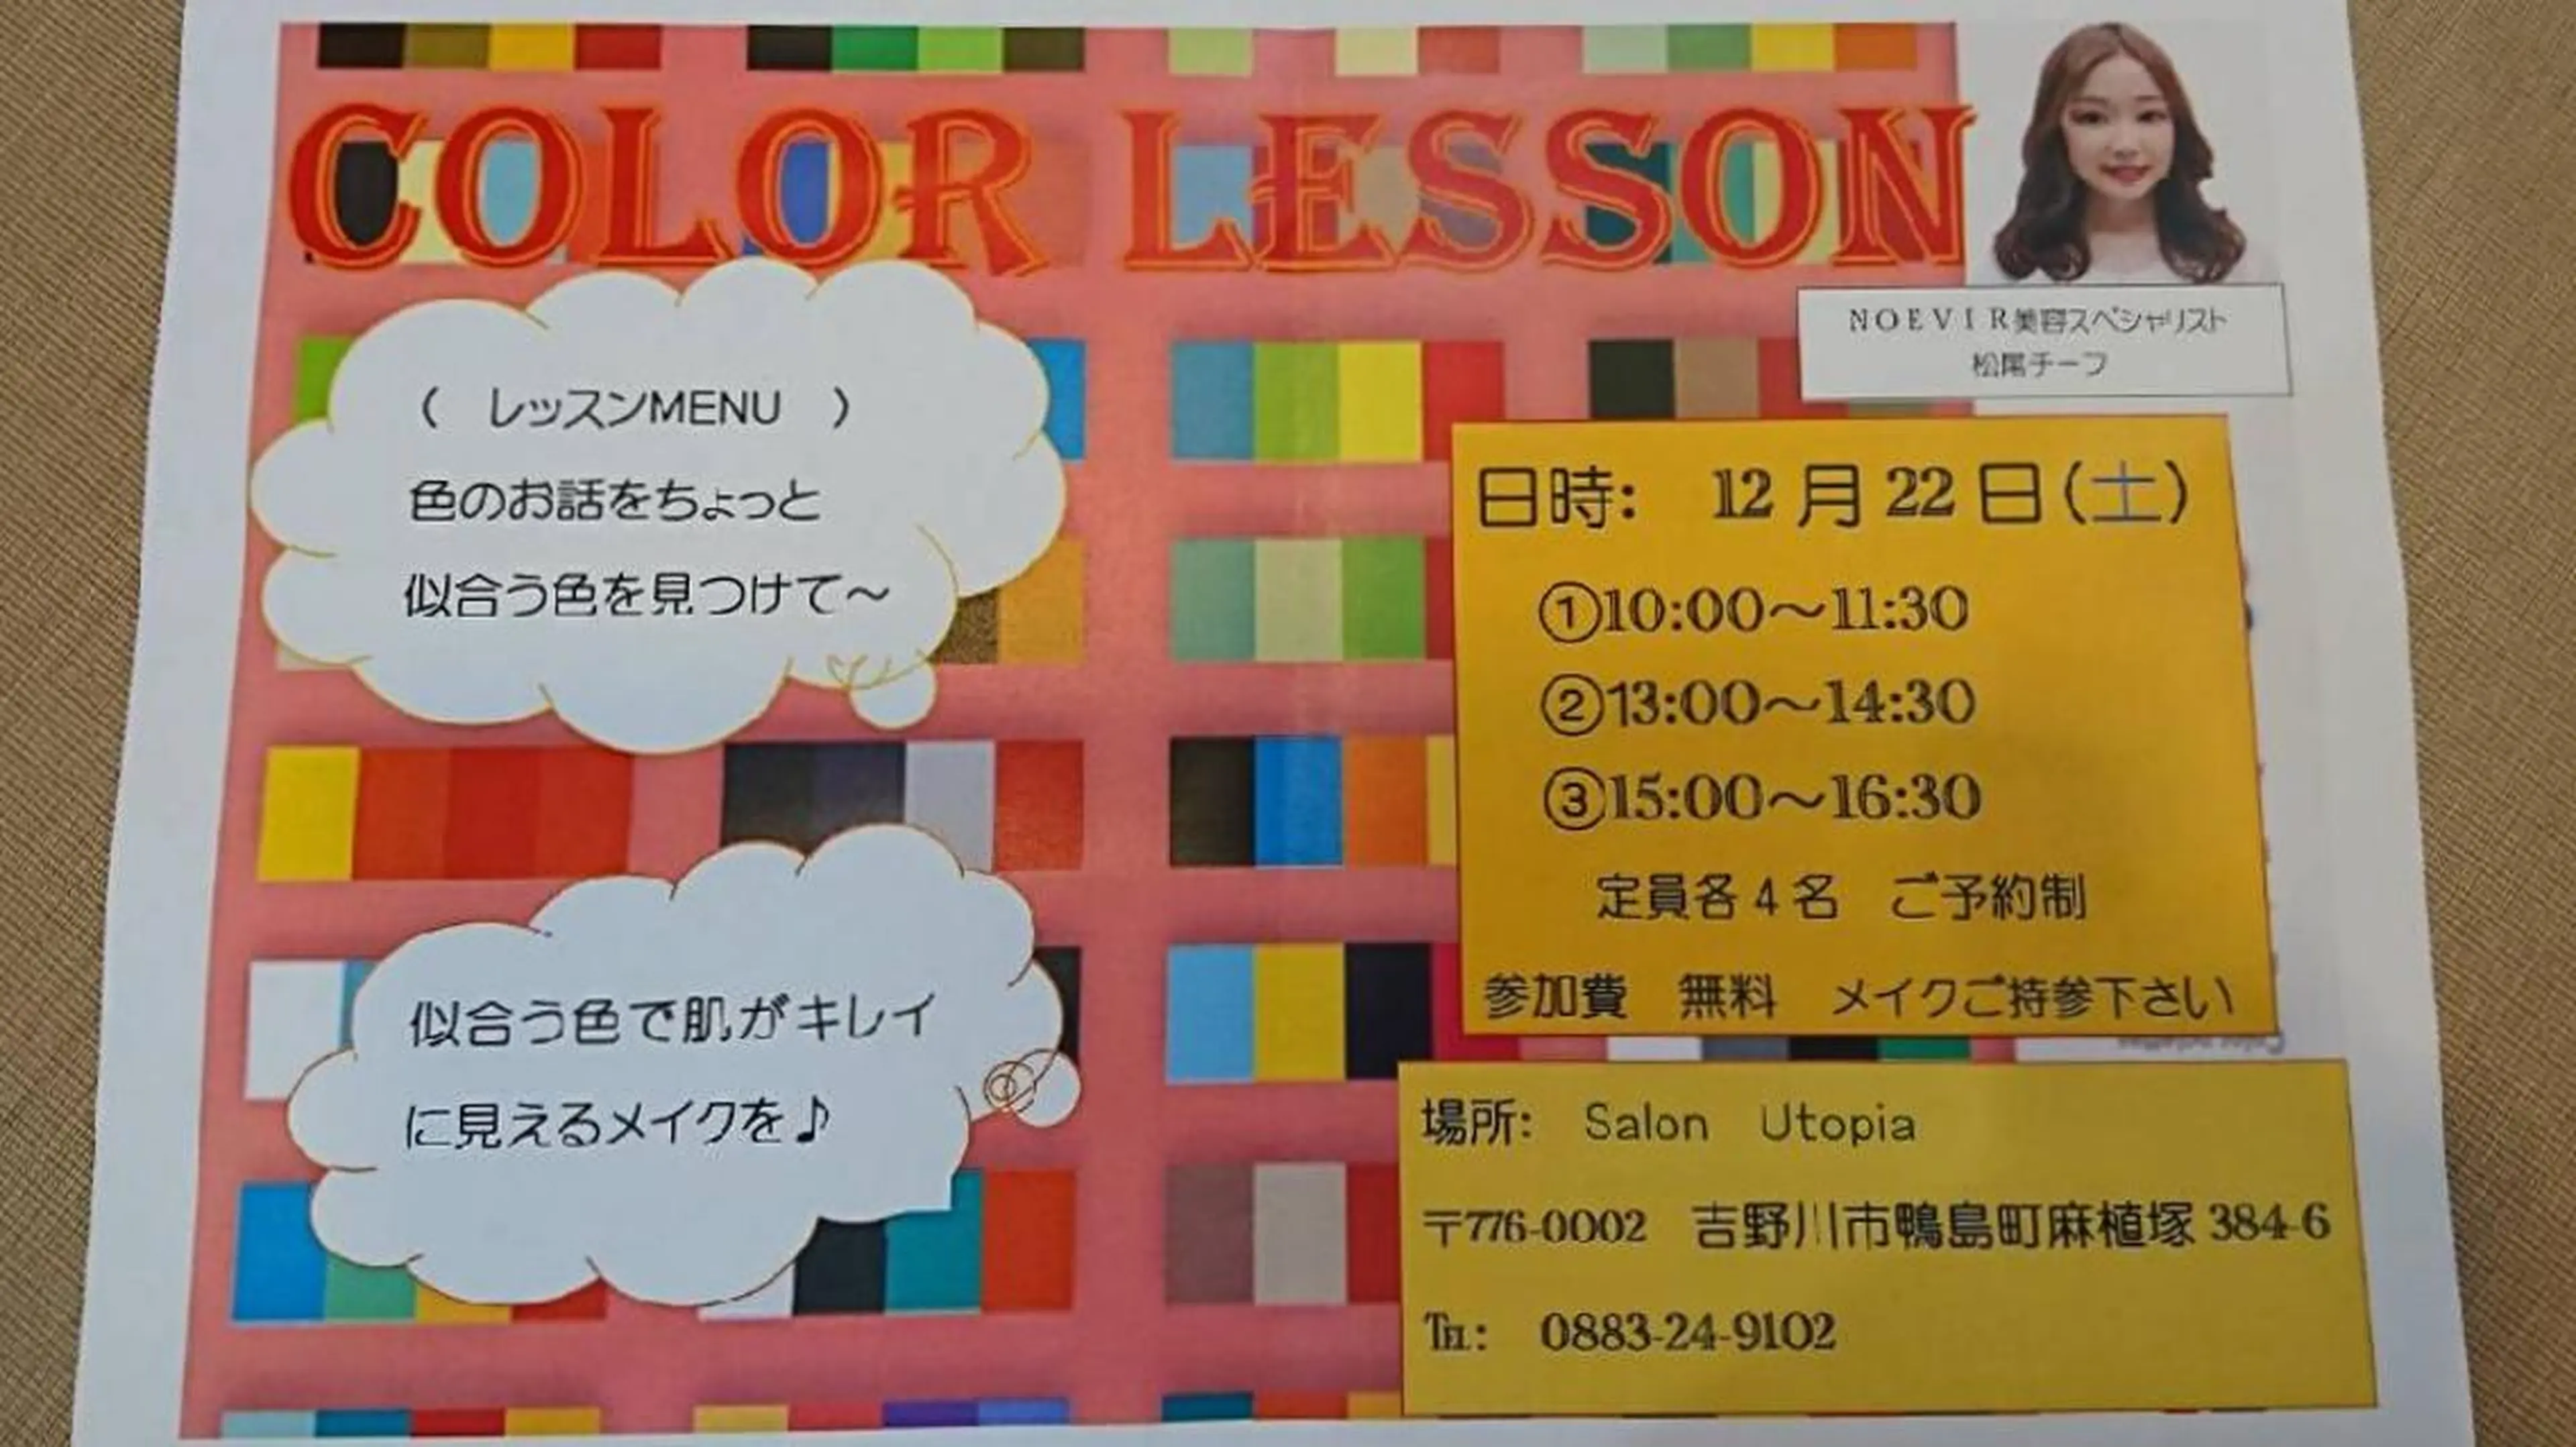 COLOR LESSON
NOEVIR美容スペシャリスト
松尾チーフ
( レッスンMENU )
色のお話をちょっと
似合う色を見つけて～
日時: 12月22日(土)
①10:00～11:30
②13:00～14:30
③15:00～16:30
定員各4名 ご予約制
参加費 無料 メイクご持参下さい
似合う色で肌がキレイ
に見えるメイクを♪
場所: Salon Utopia
〒776-0002 吉野川市鴨島町麻植塚384-6
℡: 0883-24-9102